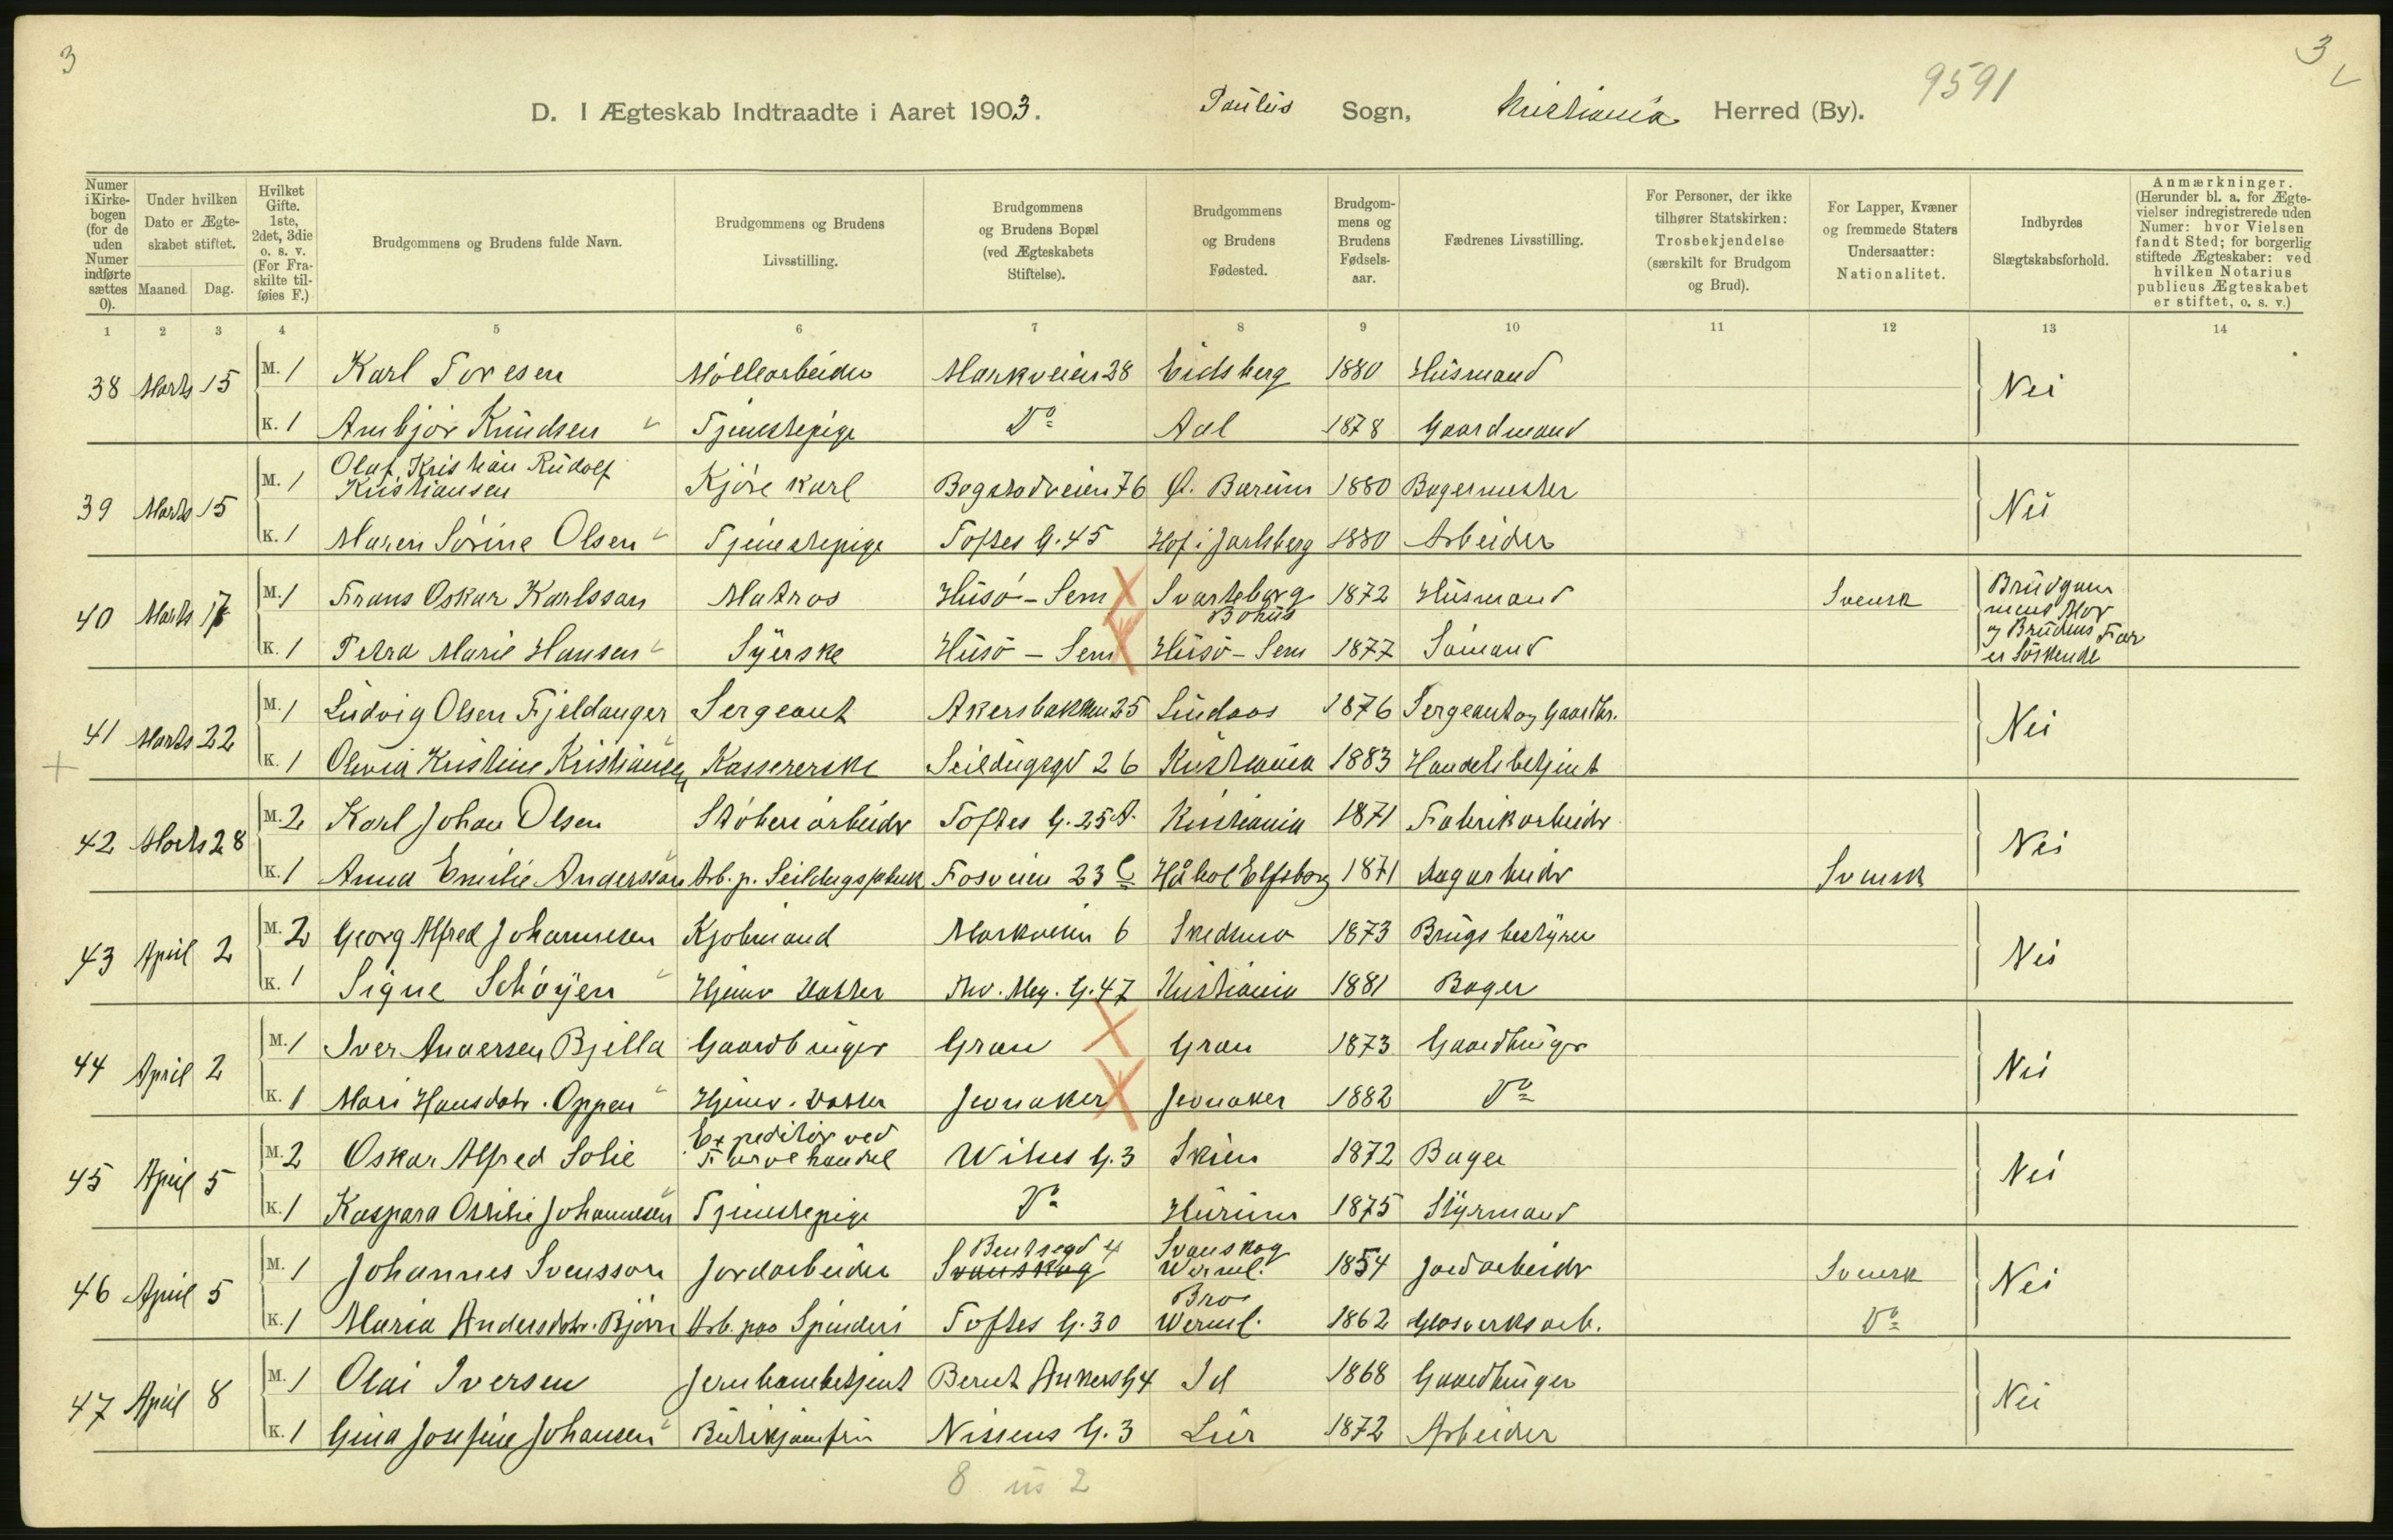 3
3
9591
D. I Ægteskab Indtraadte i Aaret 1903. Paulus Sogn, Kristiania Herred (By).
Numer i Kirkebogen (for de uden Numer indførte sættes 0). Under hvilken Dato er Ægteskabet stiftet. Maaned. Dag. Hvilket Gifte. 1ste, 2det, 3die o. s. v. (For Fraskilte tilføies F.) Brudgommens og Brudens fulde Navn. Brudgommens og Brudens Livsstilling. Brudgommens og Brudens Bopæl (ved Ægteskabets Stiftelse). Brudgommens og Brudens Fødested. Brudgommens og Brudens Fødselsaar. Fædrenes Livsstilling. For Personer, der ikke tilhører Statskirken: Trosbekjendelse (særskilt for Brudgom og Brud). For Lapper, Kvæner og fremmede Staters Undersaatter: Nationalitet. Indbyrdes Slægtskabsforhold. Anmærkninger. (Herunder bl. a. for Ægtevielser indregistrerede uden Numer: hvor Vielsen fandt Sted; for borgerlig stiftede Ægteskaber: ved hvilken Notarius publicus Ægteskabet er stiftet, o. s. v.)
1 2 3 4 5 6 7 8 9 10 11 12 13 14
38 Marts 15 M. 1 Karl Toresen Møllearbeider Markveien 28 Eidsberg 1880 Husmand Nei
K. 1 Ambjør Knudsen Tjenestepige Do Aal 1878 Gaardmand
39 Marts 15 M. 1 Olaf Kristian Rudolf Kristiansen Kjørekarl Bogstadveien 76 Ø. Bærum 1880 Bagermester Nei
K. 1 Maren Sørine Olsen Tjenestepige Toftes G. 45 Hof i Jarlsberg 1880 Arbeider
40 Marts 17 M. 1 Frans Oskar Karlsson Matros Husø - Sem Svarteborg Bohus 1872 Husmand Svensk Brudgommens Mor og Brudens Far er Søskende
K. 1 Petra Marie Hansen Syerske Husø - Sem Husø - Sem 1877 Sømand
41 Marts 22 M. 1 Ludvig Olsen Fjeldanger Sergeant Akersbakken 25 Lindaas 1876 Sergeant og Gaardbr. Nei
K. 1 Olivia Kristine Kristiansen Kassererske Seildugsgd 26 Kristiania 1883 Handelsbetjent
42 Marts 28 M. 2 Karl Johan Olsen Støberiarbeider Toftes G. 25 A. Kristiania 1871 Fabrikarbeider Nei
K. 1 Anna Emilie Andersson Arb. p. Seildugsfabrik Fosveien 23 C Håbol Elfsborg 1871 Dagarbeider Svensk
43 April 2 M. 2 Georg Alfred Johannesen Kjøbmand Markveien 6 Skedsmo 1873 Brugsbestyrer Nei
K. 1 Signe Schøyen Hjemv. Datter Thv. Mey. G. 47 Kristiania 1881 Bager
44 April 2 M. 1 Iver Andersen Bjella Gaardbruger Gran Gran 1873 Gaardbruger Nei
K. 1 Mari Hansdatr. Oppen Hjemv. Datter Jevnaker Jevnaker 1882 Do
45 April 5 M. 2 Oskar Alfred Solie Expeditør ved Farvehandel Wilses G. 3 Skien 1872 Bager Nei
K. 1 Kaspara Ottilie Johannesen Tjenestepige Do Hurum 1875 Styrmand
46 April 5 M. 1 Johannes Svensson Jordarbeider Bentsegd 4 Svanskog Svanskog Werml. 1854 Jordarbeider Svensk Nei
K. 1 Maria Andersdotr. Björn Arb. paa Spinderi Toftes G. 30 Bro Werml. 1862 Glasverksarb. Do
47 April 8 M. 1 Olai Iversen Jernbanebetjent Bernt Ankers G 4 Id 1868 Gaardbruger Nei
K. 1 Gina Josefine Johansen Butikjomfru Nissens G. 3 Lier 1872 Arbeider
8 us 2